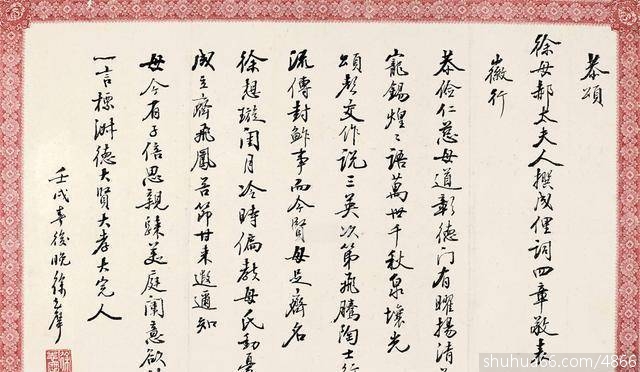 恭頌
徐母郝太夫人撰成俚詞四章敬表
徽行
恭儉仁慈母道彰德門有曜揚清
寵錫煌〻語萬世千秋泉壤光
頌魁文作說三英次第飛騰陶士行
流傳封鮓事而今賢母足齊名
徐想璇閨月冷時偏教母氏動
成立齊飛鳳苦節甘来遐邇知
母今有子倍思親騄美庭闈意欲
一言標淑德大賢大孝大完人
壬戌年後晚徐
shuhua66.com/4866